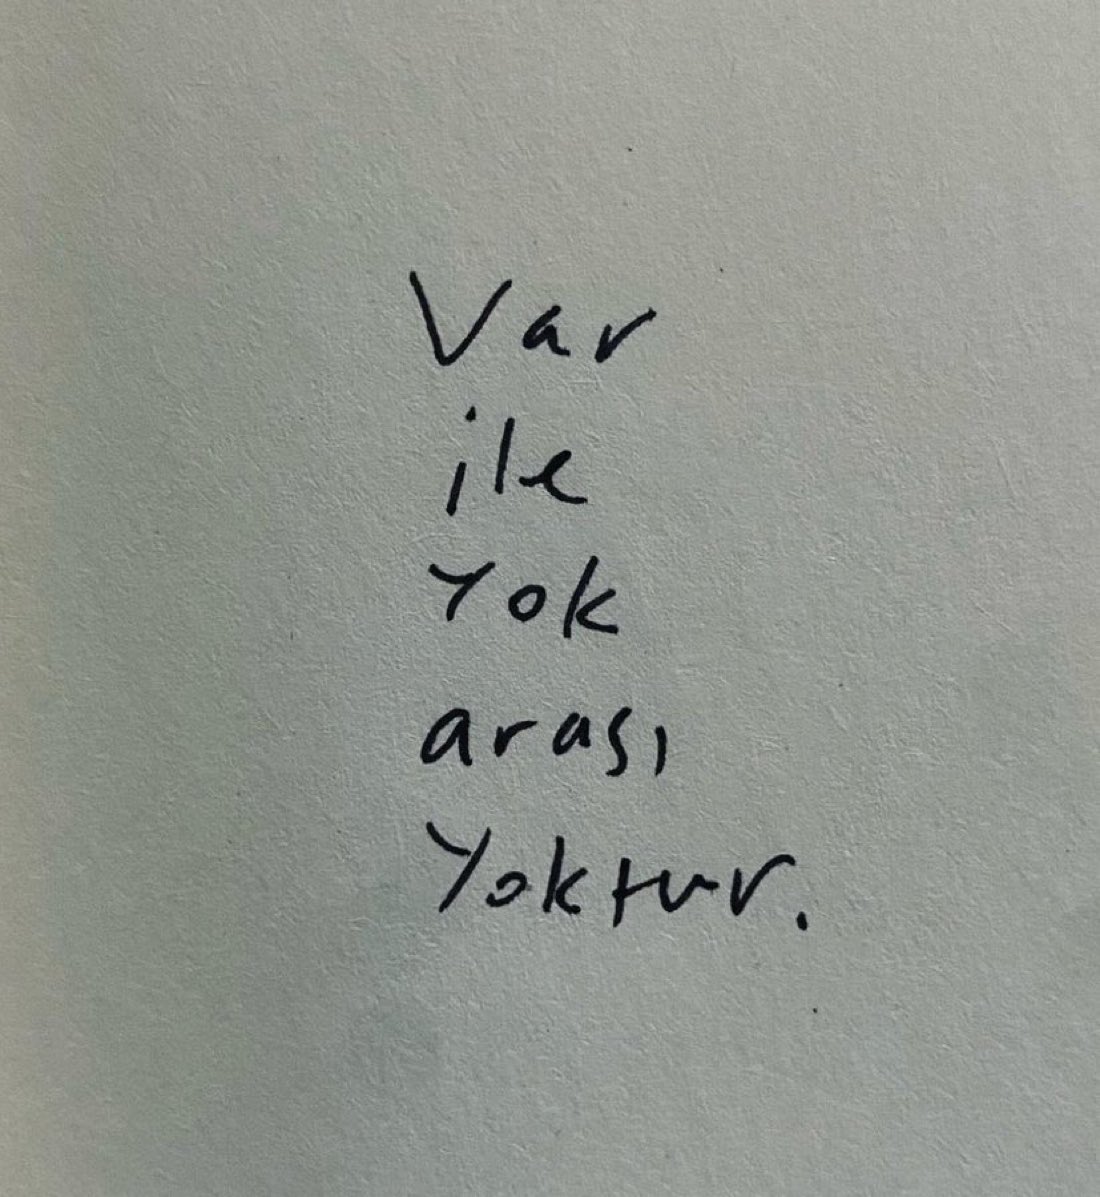 Var
ile
Yok
arası
Yoktur.